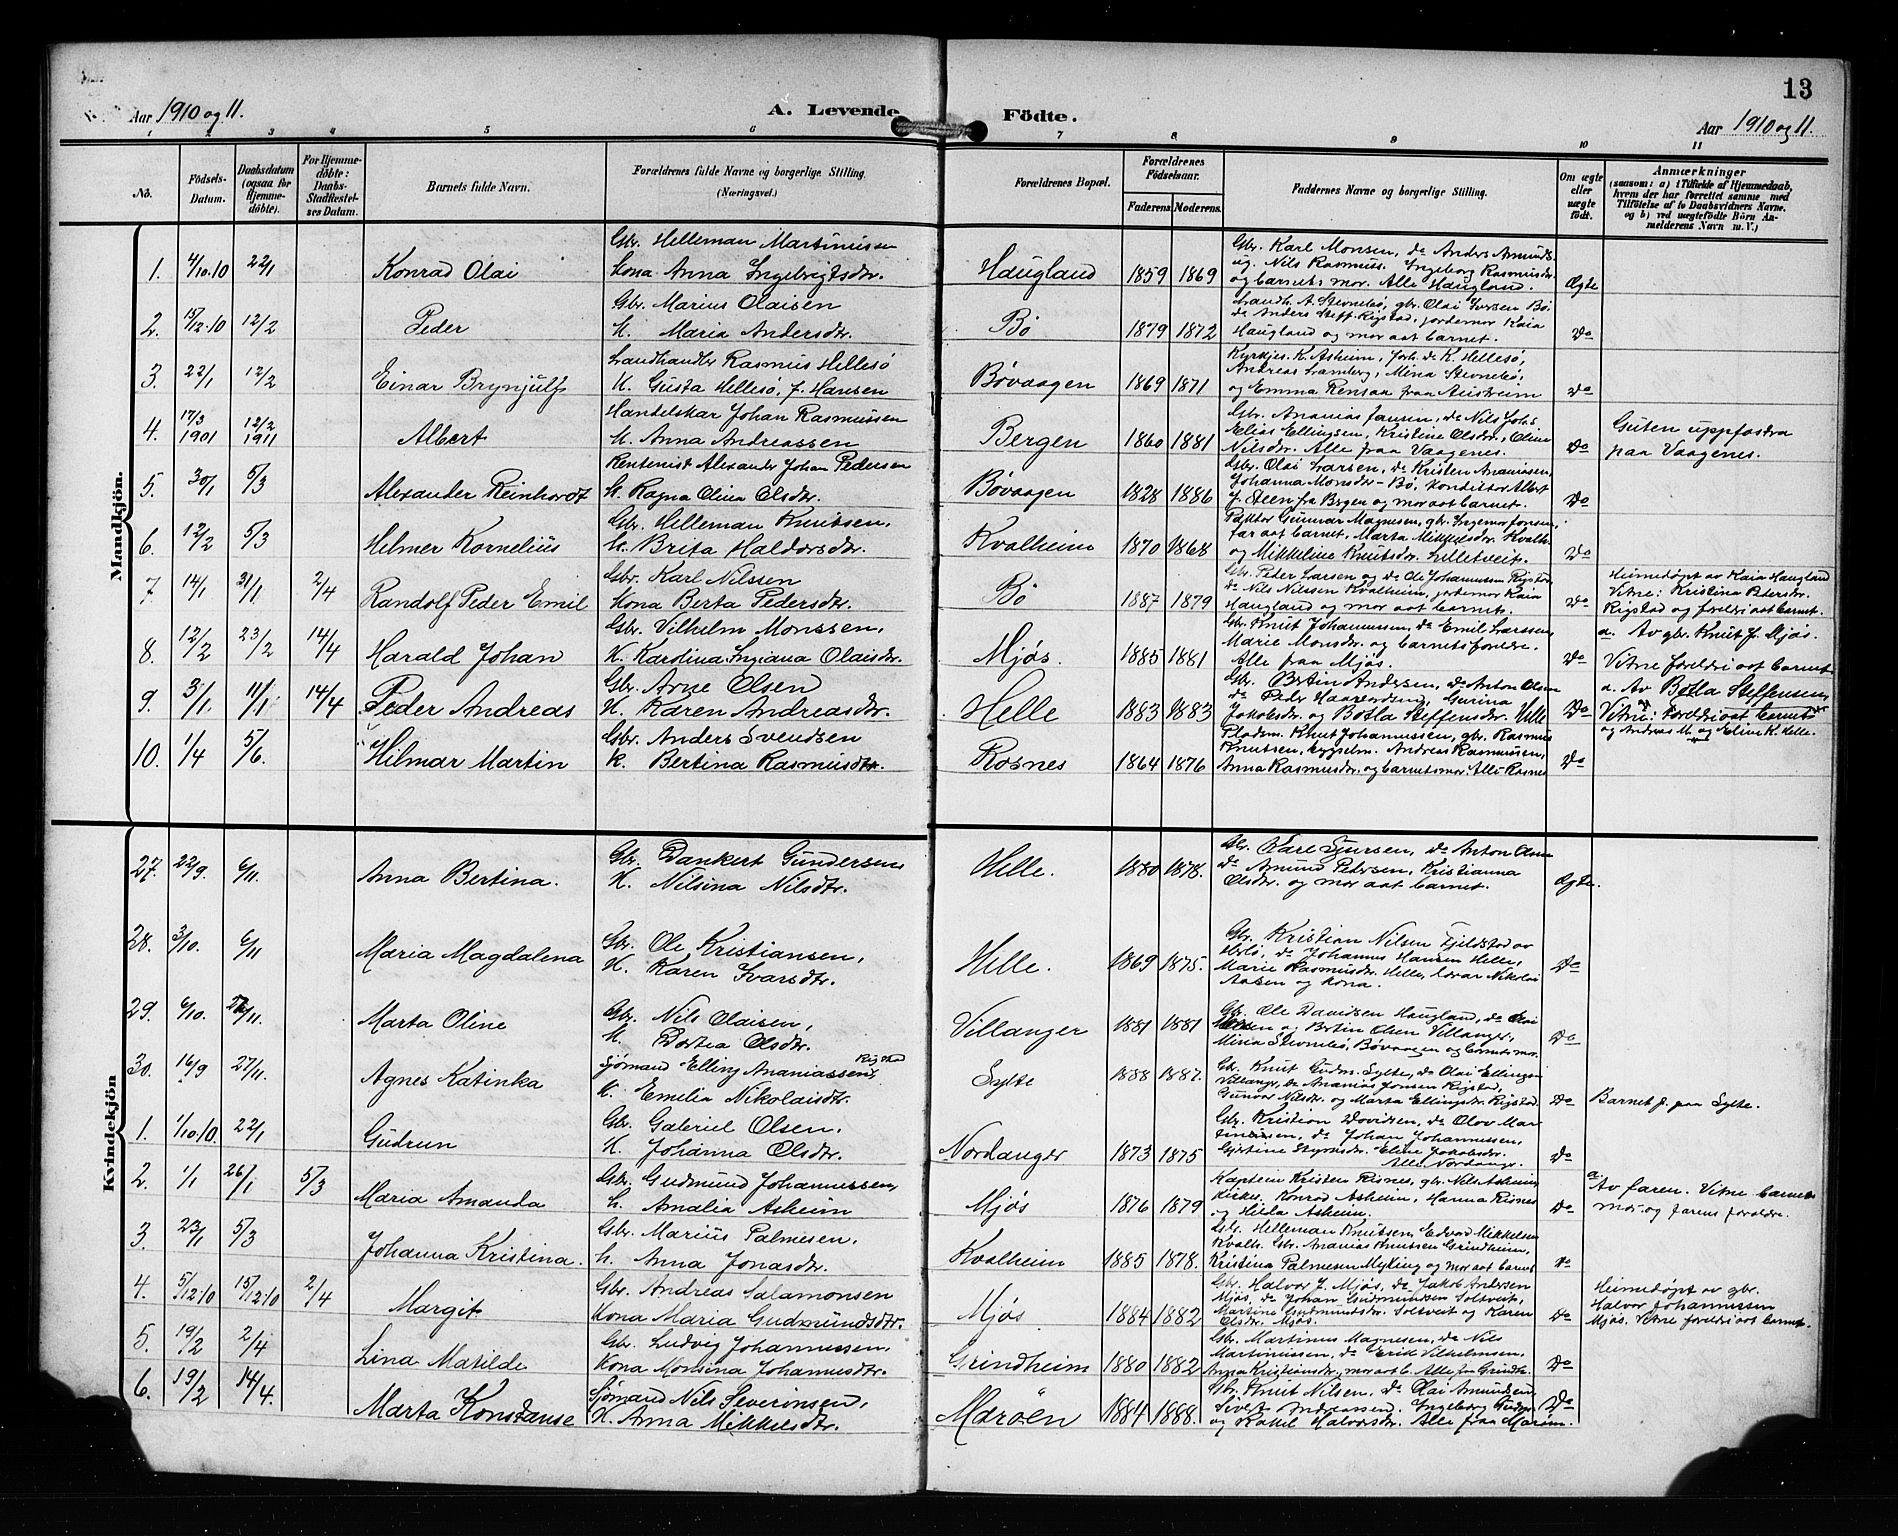 13
Aar 1910 og 11.
A. Levende Fødte.
Aar 1910 og 11.
1 2 3 4 5 6 7 8 9 10 11
No.
Födsels-Datum.
Daabsdatum (ogsaa for Hjemme-döbte).
For Hjemme-döbte: Daabs-Stadfæstel-ses Datum.
Barnets fulde Navn.
Forældrenes fulde Navne og borgerlige Stilling. (Næringsvei.)
Forældrenes Bopæl.
Forældrenes Födselsaar.
Faderens. Moderens.
Faddernes Navne og borgerlige Stilling.
Om ægte eller uægte födt.
Anmærkninger
(saasom: a) i Tilfælde af Hjemmedaab, hvem der har forrettet samme med Tilföielse af to Daabsvidners Navne, og b) ved uægtefödte Börn An-melderens Navn m. V.)
Mandkjön.
1. 4/10.10 22/1 Konrad Olai
Gbr. Helleman Martinussen
Kona Anna Ingebrigtsdtr.
Haugland 1859 1869
Gbr. Karl Monsen, do Anders Amunds.
og Nils Rasmuss. Ingeborg Rasmusdtr.
og barnets mor. Alle Haugland.
Ægte
2. 15/12.10 12/2 Peder
Gbr. Marius Olaisen
K. Maria Andersdtr.
Bø 1879 1872
Landh. A. Stevnebø, gbr. Olai Iversen Bø.
do Anders Steff. Rigstad, jordemor Kaia
Haugland og mor aat barnet.
Do
3. 22/1 12/2 Einar Brynjulf
Landhandler Rasmus Hellesø
K. Gusta Hellesø, f. Hansen
Bøvaagen 1869 1871
Kyrkjes. K. Asheim, Joh. do K. Hellesø,
Andreas Lramberg, Mina Stevnebø,
og Emma Rensaa fraa Austrheim
Do
4. 17/3 1901 12/2 1911 Albert
Handelskar Johan Rasmussen
K. Anna Andreassen
Bergen 1860 1881
Gbr. Ananias Jansen, do Nils Johs.
Elias Ellingsen, Kristine Olsdtr., Oline
Nilsdtr. Alle fraa Vaagenes.
Do
Guten uppfostra
paa Vaagenes.
5. 30/1 5/3 Alexander Reinhardt
Rentenist Alexander Johan Pedersen
K. Ragna Olina Olsdtr.
Bøvaagen 1828 1886
Gbr. Olai Larsen, do Kristen Ananiasen,
Johanna Monsdtr - Bø, Konditor Albert
J. Steen fra Bergen og mor aat barnet.
Do
6. 12/2 5/3 Helmer Kornelius
Gbr. Helleman Knutsen,
K. Brita Haldorsdtr.
Kvalheim 1870 1868
Faktor Gunnar Magnesen, gbr. Ingemor Jonsen,
far aat barnet, Marta Mikkelsdtr. Kvalh.
og Mikkeline Knutsdtr. Lilletveit.
Do
7. 14/1 31/1. 2/4 Randolf Peder Emil
Gbr. Karl Nilssen
Kona Berta Pedersdtr.
Bø 1887 1879
Gbr. Peder Larsen og do Ole Johannessen Rigstad,
do Nils Nilssen Kvalheim, jordemor Kaia
Haugland og mor aat barnet.
Do
Heimedøpt av Kaia Haugland
Vitne: Kristina Petersdtr.
Rigstad og foreldri aat barnet.
8. 12/2 23/2 14/4 Harald Johan
Gbr. Vilhelm Monssen,
K. Karolina Ingiana Olaisdtr.
Mjøs. 1885 1881
Gbr. Knut Johannessen, do Emil Larssen,
Marie Monsdtr. og barnets foreldre.
Alle fraa Mjøs.
Do
a. Av gbr. Knut J. Mjøs.
Vitne foreldri aat barnet
9. 3/1. 11/1 14/4 Peder Andreas
Gbr. Arne Olsen
K. Karen Andreasdtr.
Helle 1883 1883
Gbr. Bertin Andersen, do Anton Olsen
do Peder Haagensen, Gurina
Jakobsdtr. og Botla Steffensdtr. Helle
Do
a. Av Botla Steffensen,
Vitne: Foreldri aat barnet
og Andreas M. og Eline K. Helle.
10. 1/4 5/6. Hilmar Martin
Gbr. Anders Svendsen
K. Bertina Rasmusdtr.
Rosnes 1864 1876
Pladsm. Knut Johannessen, gbr. Rasmus
Knutsen, bygselm. Andreas Rasmussen,
Anna Rasmusdtr. og barnets mor. Alle Rosnes
Do
Kvindekjön
27. 22/9. 6/11. Anna Bertina.
Gbr. Dankert Gundersen
K. Nilsina Nilsdtr.
Helle. 1880 1878.
Gbr. Karl Sjursen, do Anton Olsen
do Amund Pedersen, Kristianna
Olsdtr. og mor aat barnet.
Ægte.
28. 3/10. 6/11 Maria Magdalena
Gbr. Ole Kristiansen,
K. Karen Ivarsdtr.
Helle. 1869 1875.
Gbr. Kristian Nilsen Fjeldstad av
Herlø, do Johannes Hansen Helle,
Marie Rasmusdtr. Helle, lærar Nikolai
Aasen og kona.
Do
29. 6/10. 27/11. Marta Oline
Gbr. Nils Olaisen,
K. Bortea Olsdtr.
Villanger 1881 1881
Gbr. Ole Davidsen Haugland, do Olai
og Bertin Olsen Villanger,
Mina Stevnebø, Bøvaagen og barnets mor.
Do
30. 16/9 27/11. Agnes Katinka
Sjømand Elling Ananiassen, Rigstad
K. Emelia Nikolaisdtr.
Sylte 1888 1887.
Gbr. Knut Gudm. Sylte, do Olai Ellingsen
Villanger, do Ananias Jonsen Rigstad,
Gunvor Nilsdtr. og Marta Ellingsdtr. Rigstad.
Do
Barnet f. paa Sylte.
1. 1/10.10 22/1 Gudrun
Gbr. Gabriel Olsen,
K. Johanna Olsdtr.
Nordanger 1873 1875
Gbr. Kristian Davidsen, do Olov Mar-
tinussen, do Johan Johannessen,
Gjertine Styrksdtr. Eline Jakobsdtr.
Alle Nordanger.
Do
2. 1/1 26/1 5/3 Maria Amanda
Gbr. Gudmund Johannessen,
K. Amalia Asheim
Mjøs 1876 1879
Kaptein Kristen Risnes, gbr. Nils Asheim,
Kirkes. Konrad Asheim, Hanna Risnes
og Hilda Asheim.
Do
a Av faren. Vitne barnets
mor og farens foreldre.
3. 23/1 5/3 Johanna Kristina.
Gbr. Marius Palmesen,
K. Anna Jonasdtr.
Kvalheim 1885 1878.
Gbr. Helleman Knutsen, Edvard Mikkelsen
Kvalh. Gbr. Ananias Knutssen Grindheim,
Kristina Palmesen Myking og mor aat barnet
Do
4. 5/12.10 15/12.10 2/4 Margit
Gbr. Andreas Salamonsen
Kona Maria Gudmundsdtr.
Mjøs 1884 1882
Gbr. Halvor J. Mjøs, do Jakob Andersen
Mjøs, do Johan Gudmundsen Soltveit,
Martine Gudmundsdtr. Soltveit og Karen
Olsdtr. Mjøs.
Do
Heimedøpt av gbr.
Halvor Johannessen
Mjøs. Vitne foreldri aat barnet.
5. 19/2 2/4 Lina Matilde
Gbr. Ludvig Johannessen,
Kona Monsina Johannesdtr.
Grindheim 1880 1882
Gbr. Martinus Magnesen, do Nils
Martinussen, do Erik Vilhelmsen,
Anna Kristiansdtr., mor aat b. Alle fra Grindh.
Do
6. 19/2 14/4. Marta Konstanse
Sjømand Nils Severinsen,
K. Anna Mikkelsdtr.
Marøen 1884 1888.
Gbr. Knut Nilsen, do Olai Amundsen
Sivert Andreassen, Ingeborg
og Rakel Halvorsdtr. Alle fraa Marøen.
Do